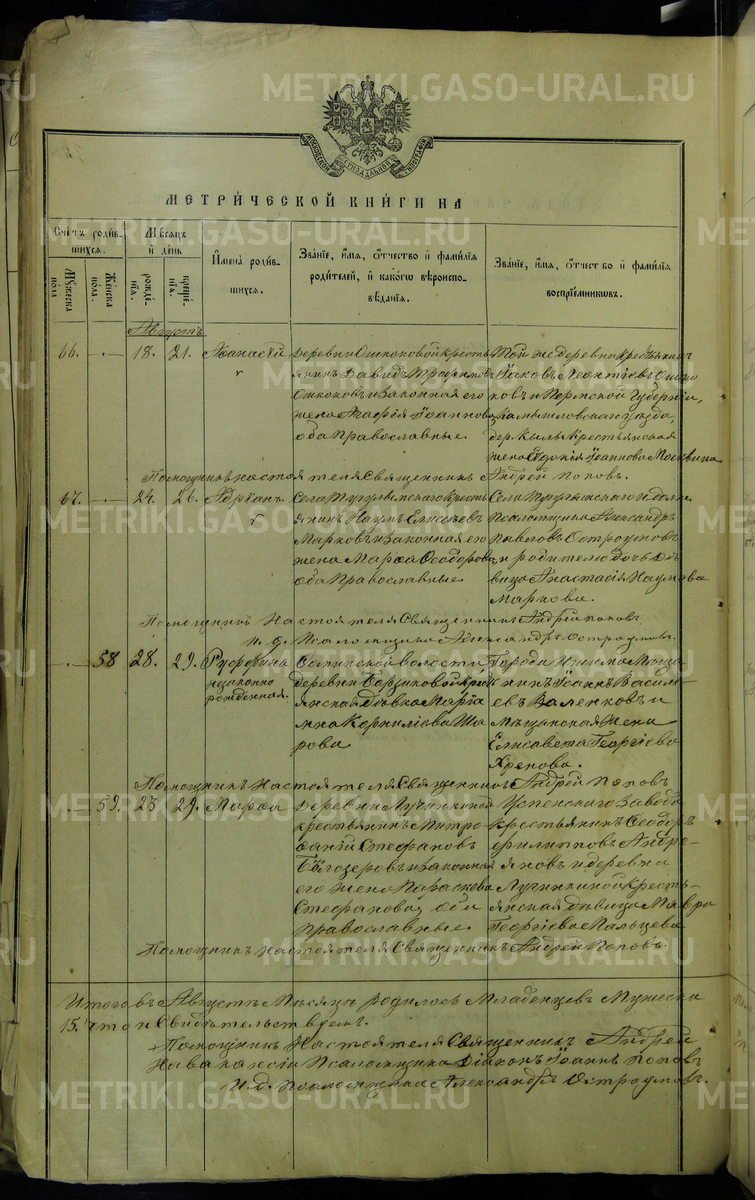 METRIKI.GASO-URAL.RU
МОСКОВСКОЙ СѴНОДАЛЬНОЙ ТИПОГРАФІИ
МЕТРИ́ЧЕСКОЙ КНИ́ГИ НА
Сче́тъ роди́в-
шихся.
Му́жеска по́ла.
Же́нска по́ла.
Мѣ́сяцъ
и҆ де́нь
рожде́нїѧ.
креще́нїѧ.
И҆мена̀ роди́в-
шихсѧ.
Зва́нїе, и҆́мѧ, ѻ҆́тчество и҆ фами́лїѧ
роди́телей, и҆ како́гѡ вѣроиспо-
вѣ́данїѧ.
Зва́нїе, и҆́мѧ, ѻ҆́тчество и҆ фами́лїѧ
воспрїе́мникѡвъ.
Августъ
66. — 18. 21. Аѳанасій
Деревни Ошкоковой кресть
янинъ Давидъ Трофимовъ
Ошкоковъ и законная его
жена Марѳія Іоаннова,
оба Православные.
Той же деревни крестьянинъ
Іаковъ Леонтіевъ Ошко
ковъ и Пермской Губерніи,
Камышловскаго уѣзда,
дер. крестьянская
жена Іоаннова Москвина
Помощникъ настоятеля Священникъ Андрей Поповъ.
67. — 24. 26. Адріанъ.
Села Тугулымскаго кресть
янинъ Наумъ Елисѣевъ
Марковъ и законная его
жена Марѳа Ѳеодорова,
оба Православные.
Села Тугулымскаго и. долж.
Псаломщика Александръ
Павловъ Остроумовъ
и родителю дочь дѣ
вица Анастасія Наумова
Маркова.
Помощникъ Настоятеля Священникъ Андрей Поповъ
И. д. Псаломщика Александръ Остроумовъ.
— 58 28. 29. Руфина
незаконно
рожденная.
волости
деревни кресть
янская дѣвка Марїа
мна Корниліова Ша
рова
Города Ишима Мѣща
нинъ Іоаннъ Василі
евъ Валенковъ и
Мѣщанская жена
Елисавета Георгіева
Хренова.
Помощникъ Настоятеля Священникъ Андрей Поповъ
— 59. 23 29. Марѳа
Деревни Лучинкиной
крестьянинъ Митро
фаній Стефановъ
Бѣлозеровъ и законная
его жена Параскева
Стефанова, оба
Православные.
Успенскаго Завода
Крестьянинъ Ѳеодоръ
Филипповъ Андре-
яновъ и деревни
Лучинкиной кресть-
янская дѣвица Мавра
Георгіева Пальцева
Помощникъ Настоятеля Священникъ Андрей Поповъ.
Итого въ Августѣ Мѣсяцѣ родилось Младенцевъ Мужеска
15. въ томъ Свидѣтельствуемъ.
Помощникъ Настоятеля Священникъ Андрей
На вакансіи Псаломщика Діаконъ Іоаннъ Поповъ
И. д. Псаломщика Александръ Остроумовъ.